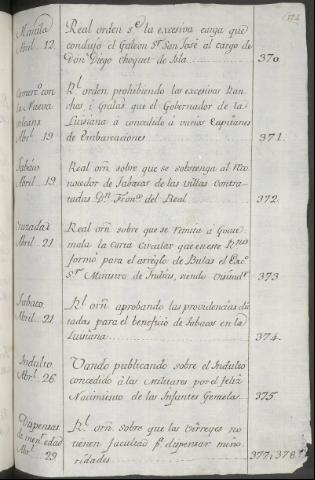 Manila
Abril. 12.
Real orden sre. la excesiva carga que
condujo el Galeon Sn. San José al cargo de
Don Diego Choquet de Isla
370.
Comerc. con
la Nueva
Orleans
Abrl. 19
Rl. orden prohibiendo las excesivas
i Gralas que el Gobernador de la
Luisiana a concedido á varios Capitanes
de Embarcaciones
371.
Tabaco
Abril. 19
Real orñ. sobre que se sobtenga al Reco
nocedor de Tabacos de las Villas contra-
tadas Dn. Franco. del Real
372.
Cruzada
Abril. 21
Real orñ. sobre que se remita á Goate-
mala la Carta Circular que en este Rno.
formó para el arréglo de Bulas el Exo.
Sor. Ministro de Indias, siendo
373
Tabaco.
Abril. 21.
Rl. orñ. aprobando las providencias dic
tadas para el beneficio de Tabacos en la
Luisiana
374.
Indulto
Abrl. 26.
Vando publicando sobre el Indulto
concedido à las Militares por el feliz
Nacimiento de las Infantes Gemelas.
375.
Dispensas
de menr. edad
Abrl. 29
Rl. orñ. sobre que los Virreyes no
tienen facultad pa. dispensar mino
ridades
377, 378.